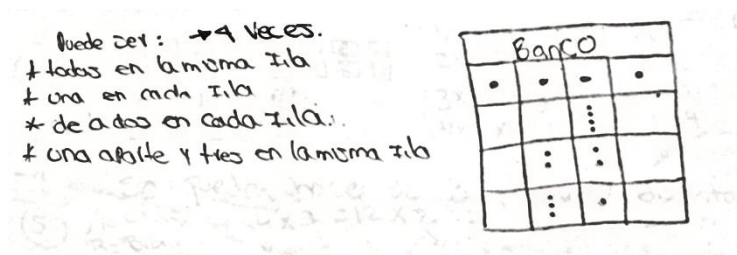 Puede ser: → 4 veces.
* todos en la misma Fila
* una en cada Fila
* de a dos en cada Fila.
* una aparte y tres en la misma Fila
Banco